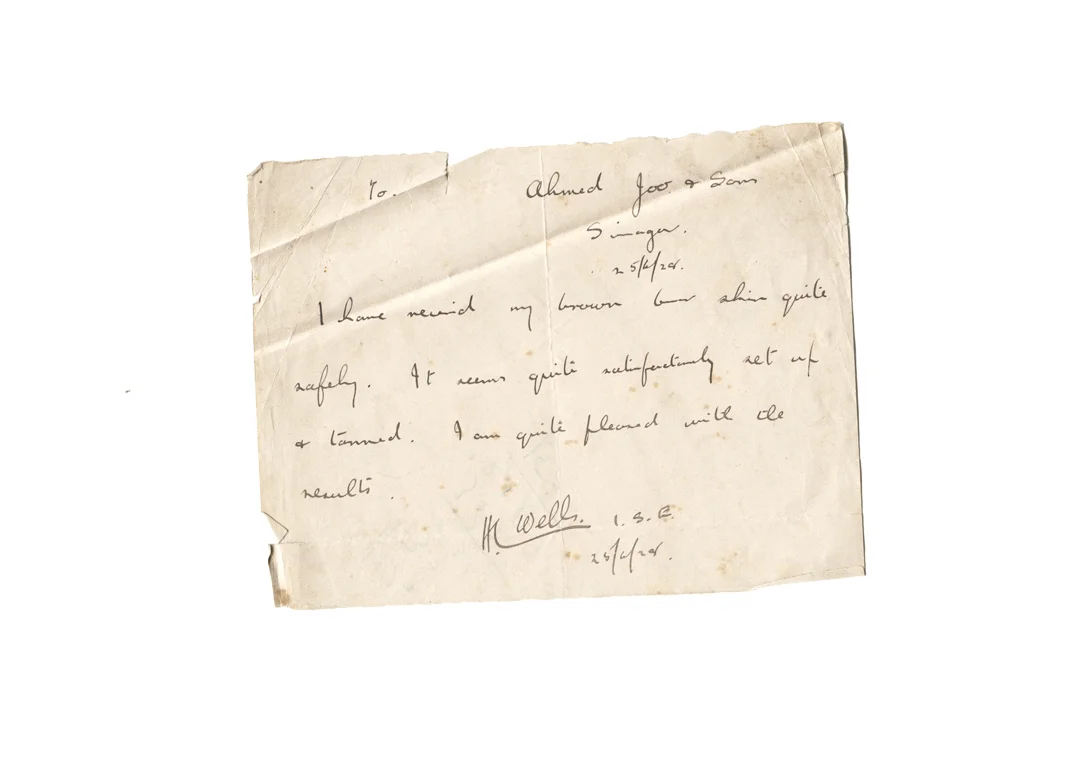 To. Ahmed Joo & Sons
Srinagar.
25/6/28.
I have received my brown bear skin quite
safely. It seems quite satisfactorily set up
& tanned. I am quite pleased with the
results.
Wells. I. S. E.
25/6/28.